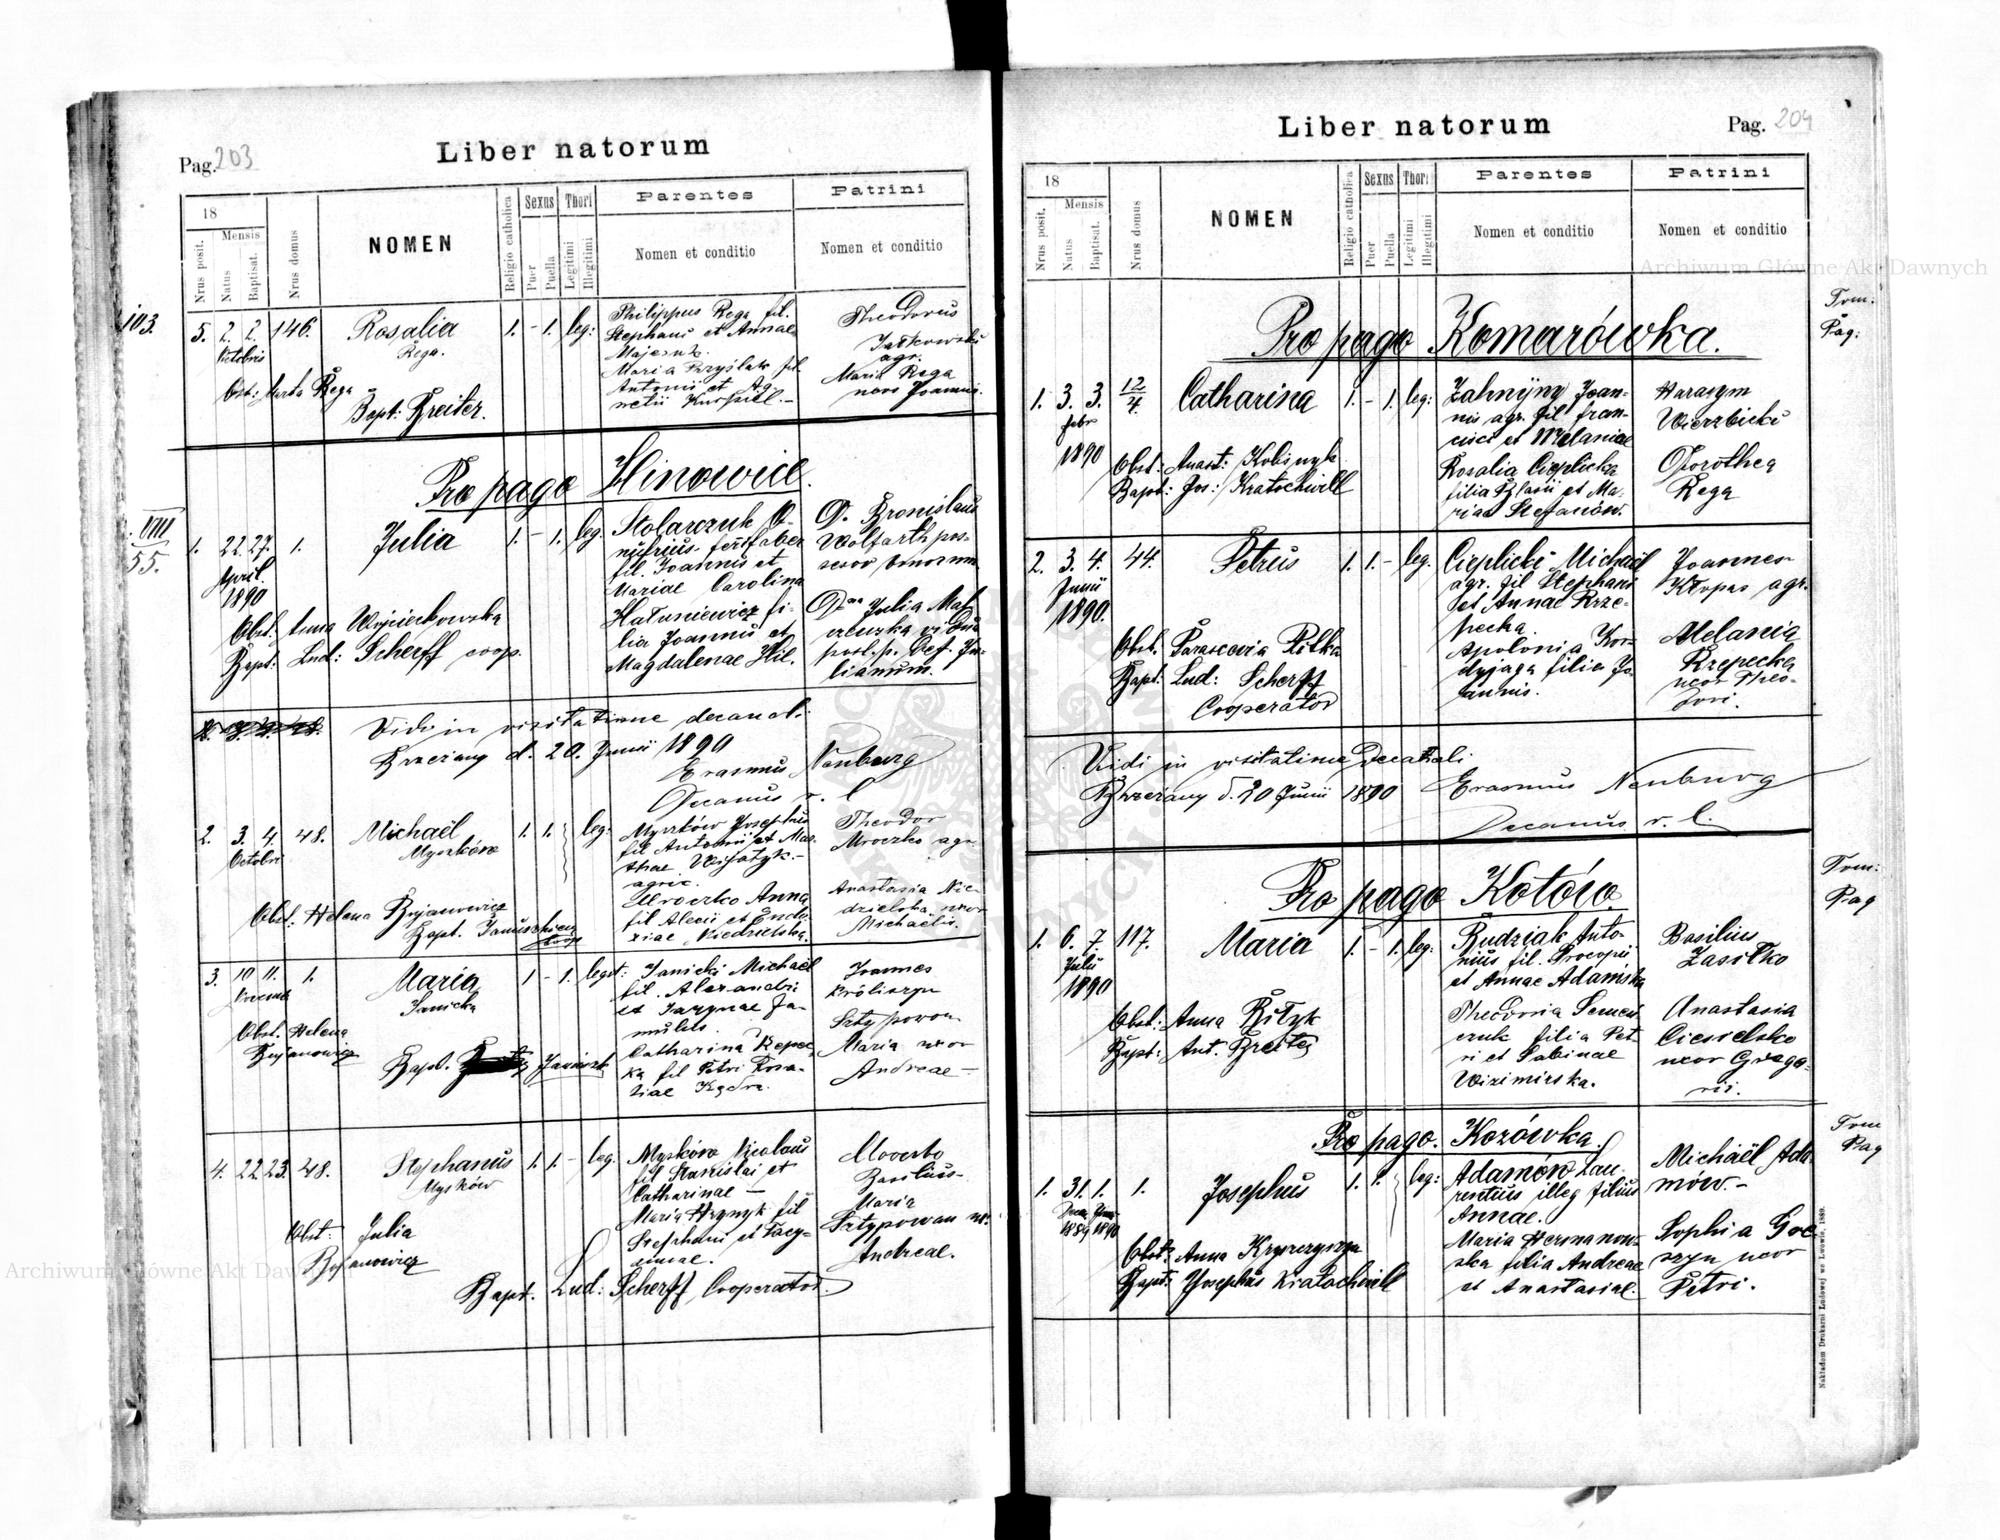 Pag. 203
Liber natorum
18
Mensis
Nrus posit.
Natus
Baptisat.
Nrus domus
NOMEN
Religio catholica
Sexus
Puer
Puella
Thori
Legitimi
Illegitimi
Parentes
Nomen et conditio
Patrini
Nomen et conditio
103.
5. 2. 2. 146. Rosalia 1. - 1. leg:
Octobris
Rega.
Obst: Marta Rega
Bapt: Breiter.
Philippus Rega fil.
Stephani et Annae
Majesuk.
Maria Przyślak fil.
Antonii et Ag-
netis
Theodorus
agr.
Maria Rega
uxor Joannis.
Pro pago Hinowice.
VIII
55.
1. 22. 27. 1. Julia 1. - 1. leg.
April.
1890
Obst. Anna Wojciechowska
Bapt: Lud: Scherff coop.
Stolarczuk O-
nufrius. ferrifaber
fil. Joannis et
Mariae Carolina
Hatuniewicz fi-
lia Joannis et
Magdalenae Hil.
D. Bronislaus
Wolfarth pos-
sesor bonorum
Dna Julia Mal-
post. p. Def. Ju-
lianum.
Vidi in visitatione decanali
Brzeżany d. 20. Junii 1890
Erasmus Neuburg
Decanus r. l.
2. 3. 4. 48. Michaël 1. 1. leg:
Octobris
Myszków
Obst: Helena Bojanowicz
Bapt. Januszkiewicz
coop
Myszków Josephus
fil Antonii et Mar-
thae
agric.
Mroczko Anna
fil Alexii et Eudo-
xiae Niedzielska.
Theodor
Mroczko agr.
Anastasia Nie-
dzielska uxor
Michaëlis.
3. 10. 11. 1. Maria 1 - 1. legit:
Janicka
Obst. Helena
Bojanowicz
Bapt. Janiszk
Janicki Michaël
fil. Alexandri
et Jarynae Ja-
Catharina Repec-
ka fil Petri Rosa-
liae
Joannes
Króliszyn
Sztypowan
Maria uxor
Andreae -
4. 22. 23. 48. Stephanus 1. 1. - leg.
Myszków
Obst: Julia
Bojanowicz
Bapt. Lud: Scherff Cooperator.
Myszków Nicolaus
fil Stanislai et
Catharinae -
Maria Hrynyk fil
Stephani et Tacy-
annae.
Basilius-
Maria
Sztypowan ux.
Andreae.
Liber natorum
Pag. 204
18
Mensis
Nrus posit.
Natus
Baptisat.
Nrus domus
NOMEN
Religio catholica
Sexus
Puer
Puella
Thori
Legitimi
Illegitimi
Parentes
Nomen et conditio
Patrini
Nomen et conditio
Tom:
Pag:
Pro pago Komarówka.
1. 3. 3. 12/4. Catharina 1. - 1. leg:
Febr
1890
Obst: Anast: Kolisnyk
Bapt: Jos: Kratochwill
Zahnÿny Joan-
nis agr. fil Fran-
cisci et Melaniae
Rosalia Cieplicka
filia Blasii et Ma-
riae Stefanów.
Harasym
Wierzbicki
Dorothea
Rega
2. 3. 4. 44. Petrus 1. 1. - leg.
Junii
1890.
Obst. Parascevia Pitka
Bapt. Lud: Scherff
Cooperator
Cieplicki Michaël
agr. fil Stephani
et Annae Rze-
pecka.
Apolonia Kor-
dyjaga filia Jo-
annis.
Joannes
Kłopas agr.
Melania
Rzepecka
uxor Theo-
dori.
Vidi in visitatione Decanali
Brzeżany d. 20 Junii 1890
Erasmus Neuburg
Decanus r. l.
Pro pago Kotów.
Tom:
Pag
1. 6. 7. 117. Maria 1. - 1. leg:
Julii
1890
Obst: Anna Biłyk
Bapt: Ant. Breiter
Rudziak Anto-
nius fil. Procopii
et Annae Adamska
Theodoria Semen-
czuk filia Pet-
ri et Sabinae
Wizimirska.
Basilius
Zasiłko
Anastasia
Ciesielska
uxor Grego-
rii.
Pro pago. Kozówka.
Tom
Pag
1. 31. 1. 1. Josephus 1. 1. leg:
Decem Janu
1889 1890
Obst: Anna Krzyczyszyn
Bapt: Josephus Kratochwill
Adamów Lau-
rentius illeg filius
Annae.
Maria Hermanow-
ska filia Andreae
et Anastasiae.
Michaël Ada-
mów. -
Sophia Goc-
szyn uxor
Petri.
Nakładem Drukarni Ludowej we Lwowie, 1889.
Archiwum Główne Akt Dawnych
Archiwum Główne Akt Dawnych